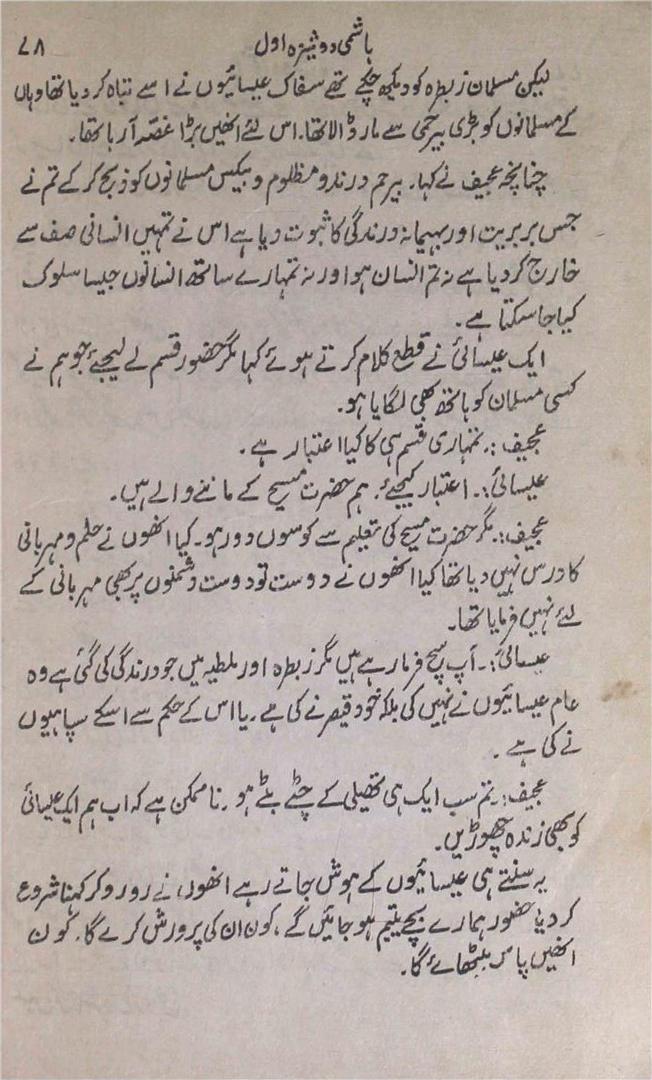 ہاشمی دوشیزہ اول ۷۸
لیکن مسلمان زبطرہ کو دیکھ چکے تھے سفاک عیسائیوں نے اسے تباہ کر دیا تھا وہاں
کے مسلمانوں کو بڑی بیرحمی سے مار ڈالا تھا۔ اس لئے انھیں بڑا غصّہ آ رہا تھا۔
چنانچہ عجیف نے کہا۔ بیرحم درندو مظلوم و بیکس مسلمانوں کو ذبح کر کے تم نے
جس بربریت اور بہیمانہ درندگی کا ثبوت دیا ہے اس نے تمہیں انسانی صف سے
خارج کر دیا ہے نہ تم انسان ہو اور نہ تمہارے ساتھ انسانوں جیسا سلوک
کیا جا سکتا ہے۔
ایک عیسائی نے قطع کلام کرتے ہوئے کہا مگر حضور قسم لے لیجئے جو ہم نے
کسی مسلمان کو ہاتھ بھی لگایا ہو۔
عجیف:۔ تمہاری قسم ہی کا کیا اعتبار ہے۔
عیسائی:۔ اعتبار کیجئے۔ ہم حضرت مسیح کے ماننے والے ہیں۔
عجیف:۔ مگر حضرت مسیح کی تعلیم سے کوسوں دور ہو۔ کیا انھوں نے حلم و مہربانی
کا درس نہیں دیا تھا کیا انھوں نے دوست تو دوست دشمنوں پر بھی مہربانی کے
لئے نہیں فرمایا تھا۔
عیسائی:۔ آپ سچ فرما رہے ہیں مگر زبطرہ اور ملطیہ میں جو درندگی کی گئی ہے وہ
عام عیسائیوں نے نہیں کی بلکہ خود قیصر نے کی ہے۔ یا اس کے حکم سے اسکے سپاہیوں
نے کی ہے۔
عجیف:۔ تم سب ایک ہی تھیلی کے چٹے بٹے ہو۔ ناممکن ہے کہ اب ہم ایک عیسائی
کو بھی زندہ چھوڑیں۔
یہ سنتے ہی عیسائیوں کے ہوش جاتے رہے انھوں نے رو رو کر کہنا شروع
کر دیا حضور ہمارے بچے یتیم ہو جائیں گے، کون ان کی پرورش کرے گا۔ کون
انھیں پاس بٹھائے گا۔